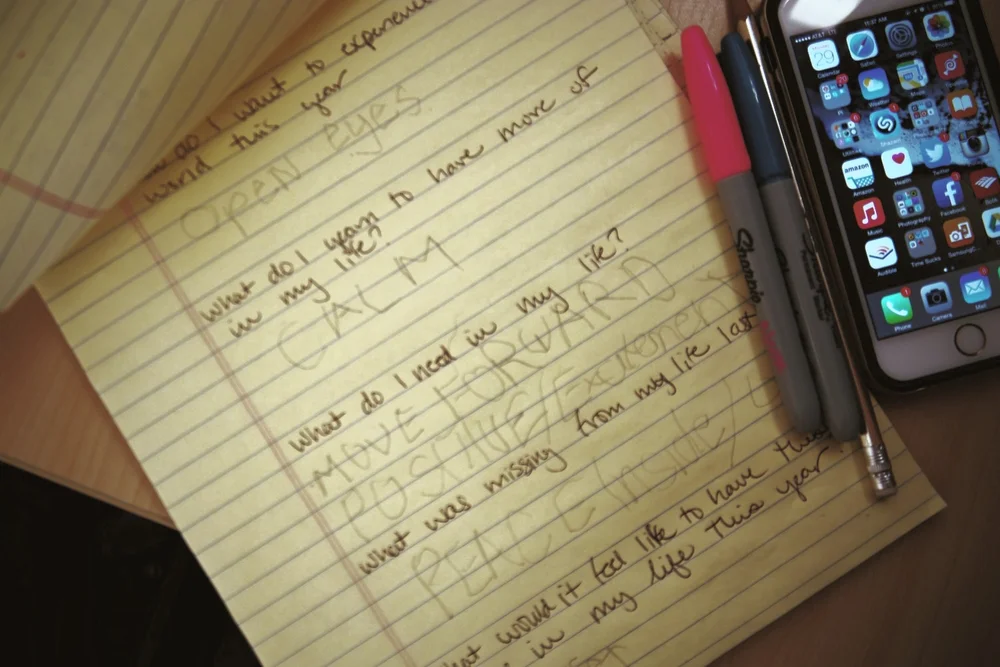 do I want to experience
world this year
open eyes
What do I want to have more of
in my life?
CALM
What do I need in my life?
MOVE FORWARD
POSITIVE/Excitement
What was missing from my life last
PEACE (inside)
would it feel like to have
in my life this year
Sharpie
11:37 AM
29
Calendar
Safari
Settings
Photos
Weather
Shazam
amazon
Amazon
Health
Twitter
Music
Photography
Facebook
Audible
Time Sucks
Phone
Camera
Mail